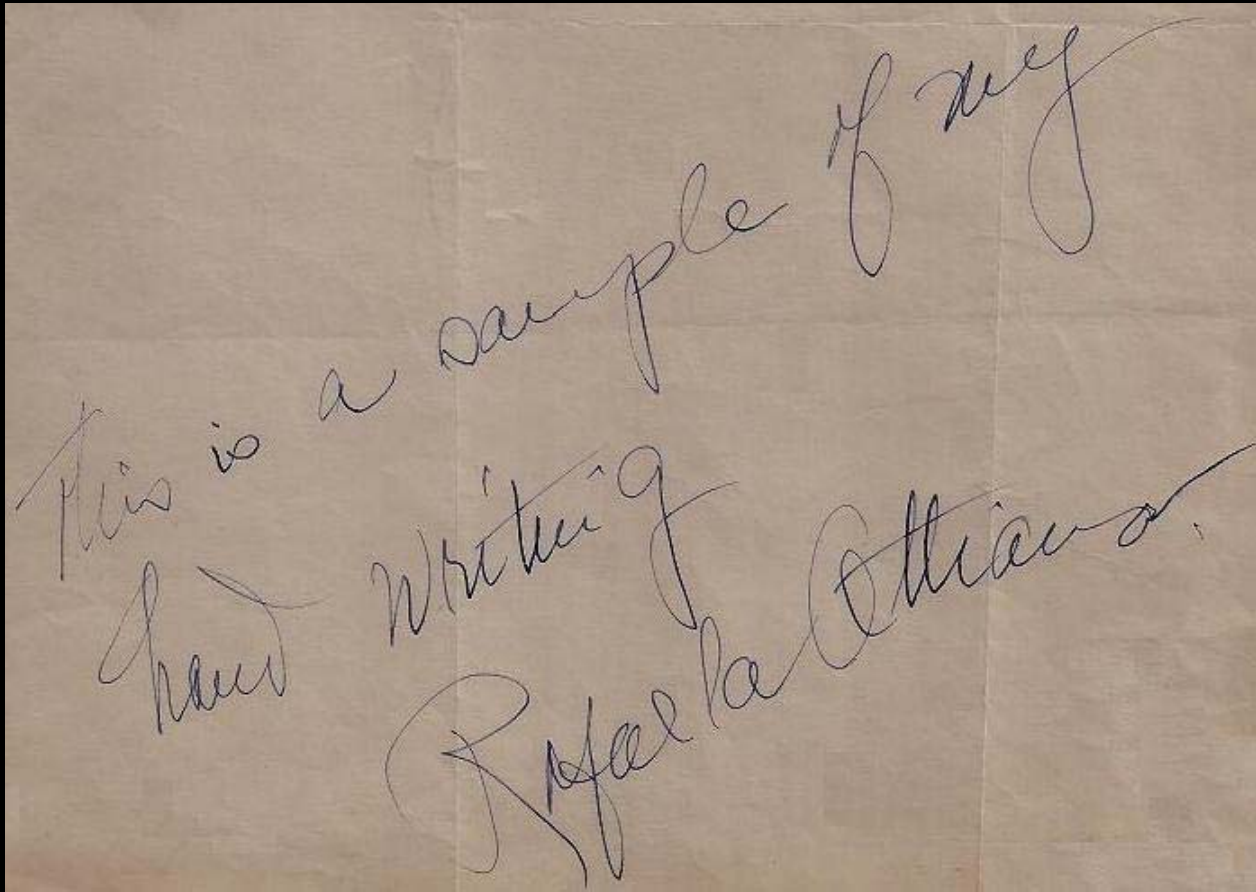 This is a sample of my
hand writing
Rafaela Ottiano.